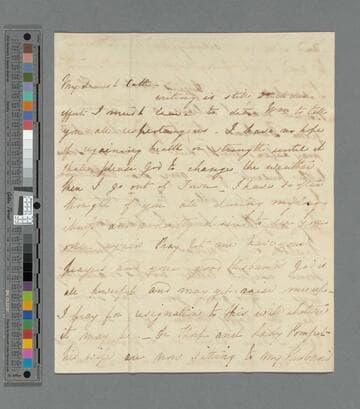 My dearest
writing is still such an
effort I must leave to dear to tell
you all respecting us. I have no hope
of regaining health or strength until it
shall please God to change the weather
then I go out of Town_ I have so often
thought of you all during my long
and
once again Pray let me have your
prayers and your good Husband's God is
all powerful and may yet raise me up
I pray for resignation to his will whatever
it may be_ and Lady Pomfret
his wife are now sitting to my Husband